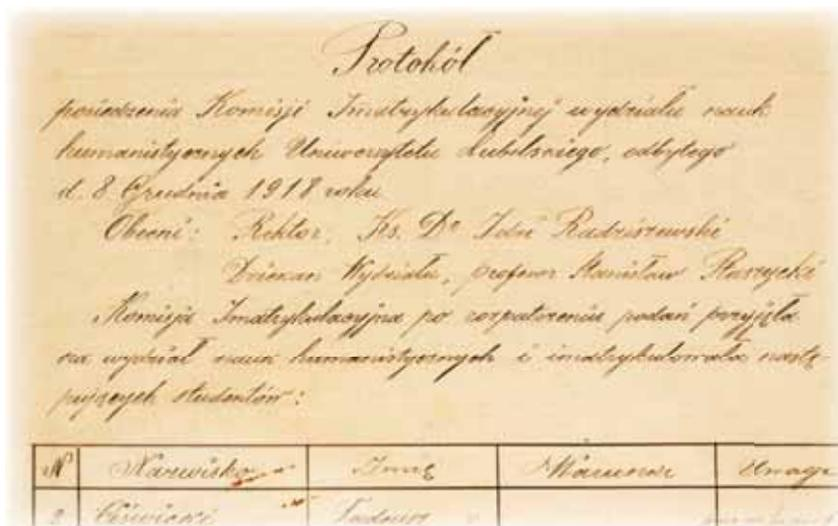 Protokół
posiedzenia Komisji Imatrykulacyjnej wydziału nauk
humanistycznych Uniwersytetu Lubelskiego, odbytego
d. 8 Grudnia 1918 roku
Obecni: Rektor, Ks. Dr Idzi Radziszewski
Dziekan Wydziału, profesor Stanisław Ptaszycki
Komisja Imatrykulacyjna po rozpatrzeniu podań przyjęła
na wydział nauk humanistycznych i imatrykulowała nastę
pujących studentów:
№ Nazwisko Imię Uwag
Tadeusz